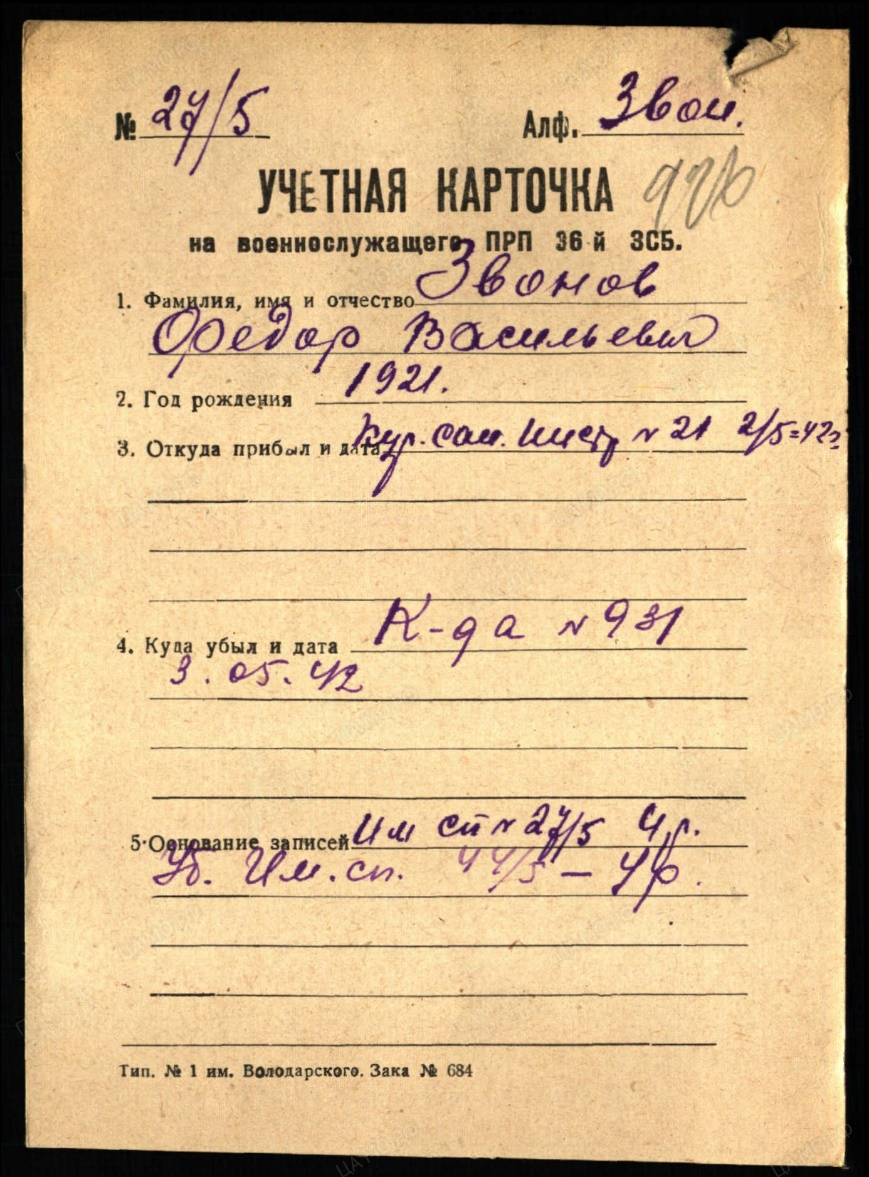 № 27/5 Алф. Звон.
УЧЕТНАЯ КАРТОЧКА
на военнослужащего ПРП 36-й ЗСБ.
1. Фамилия, имя и отчество Звонов
Федор Васильевич
2. Год рождения 1921.
3. Откуда прибыл и дата Кур. сан. инстр № 21 2/5-42г
4. Куда убыл и дата К-да № 931
3.05.42
5. Основание записей Им сп № 27/5 4р.
Уб. Им. сп. 44/5 – 4р.
Тип. № 1 им. Володарского. Зака № 684